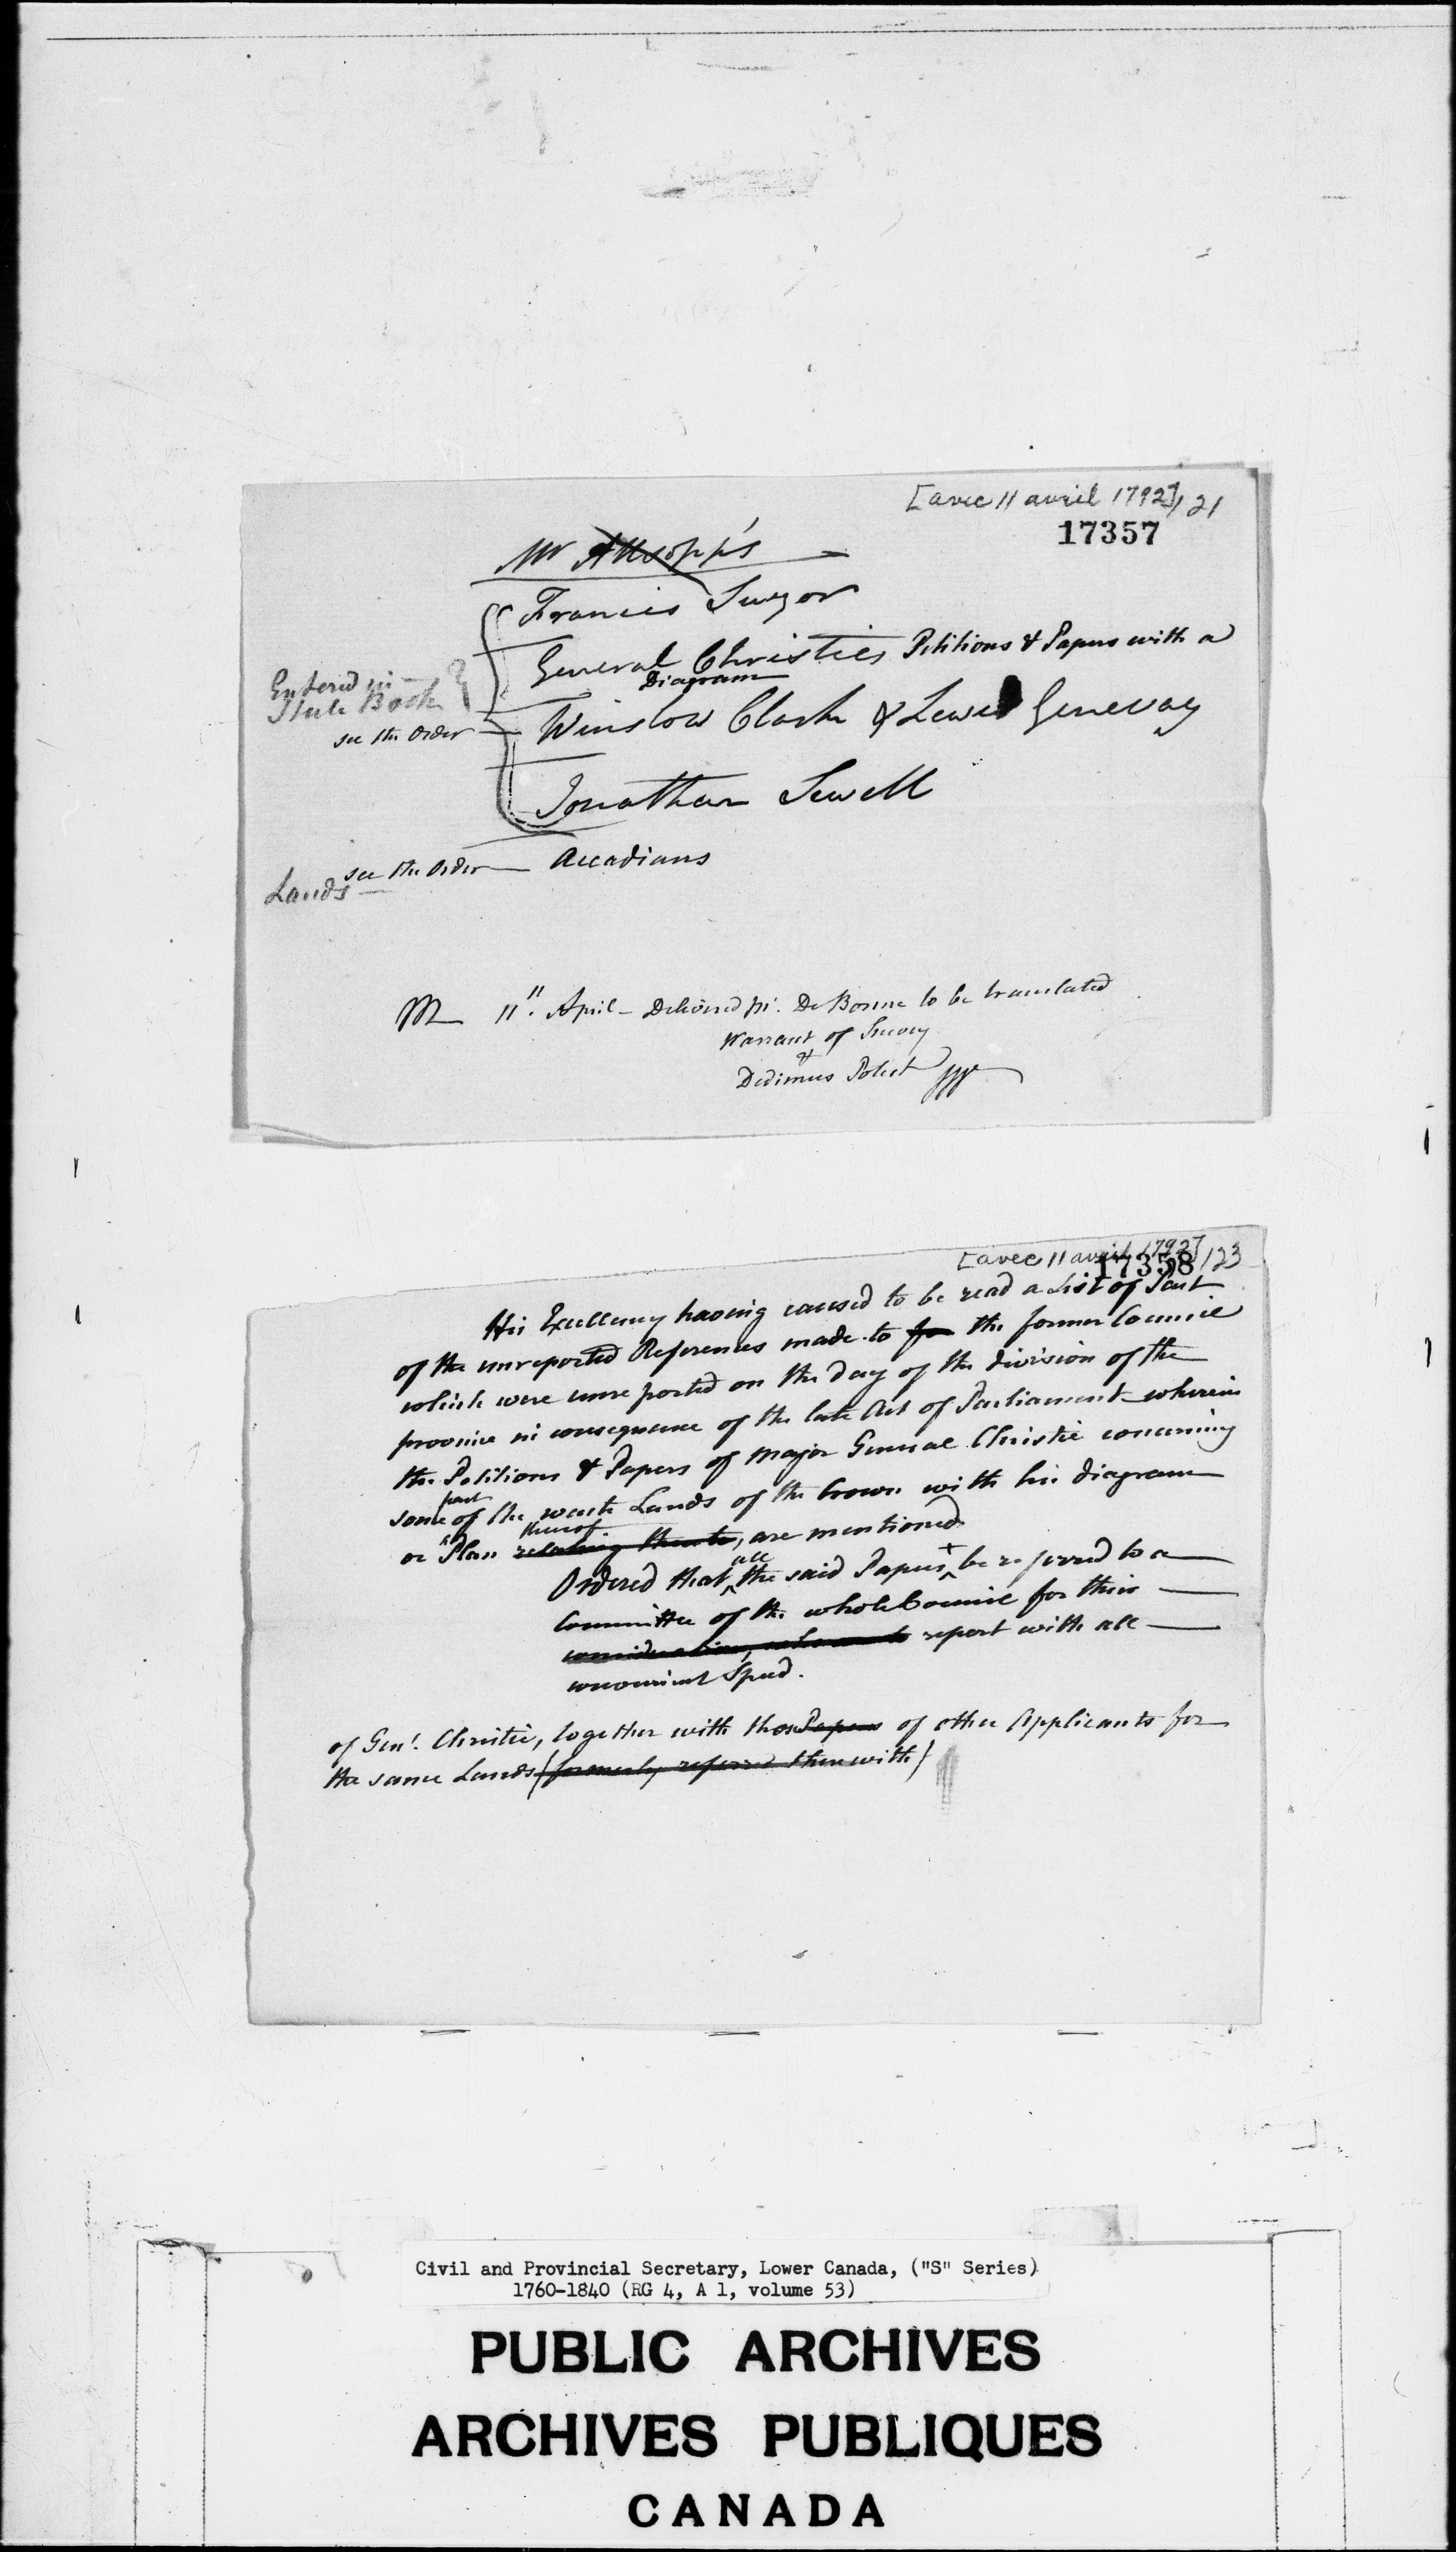 [avec 11 avril 1792] 121
17357
Mr Allsopp's
Francis Suzor
General Christies Petitions & Papers with a
Diagram
Entered in
State Book
see the Order
Winslow Clark & Lewis Genevay
Jonathan Sewell
see the Order — Accadians
Lands
11th April — Delivered Mr. De Bonne to be translated
Warrant of Survey
&
Dedimus Potest
[avec 11 avril 1792] 123
17358
His Excellency having caused to be read a List of Part
of the unreported References made to for the former Council
which were unreported on the day of the division of the
province in consequence of the late Act of Parliament wherein
the Petitions & Papers of Major General Christie concerning
some part of the waste Lands of the Crown with his diagram
or Plan relating thereto thereof, are mentioned.
Ordered that all the said Papers + be referred to a
Committee of the whole Council for their
consideration, report with all
convenient Speed.
of Genl. Christie, together with those Papers of other Applicants for
the same Lands (formerly referred therewith)
Civil and Provincial Secretary, Lower Canada, ("S" Series)
1760-1840 (RG 4, A 1, volume 53)
PUBLIC ARCHIVES
ARCHIVES PUBLIQUES
CANADA